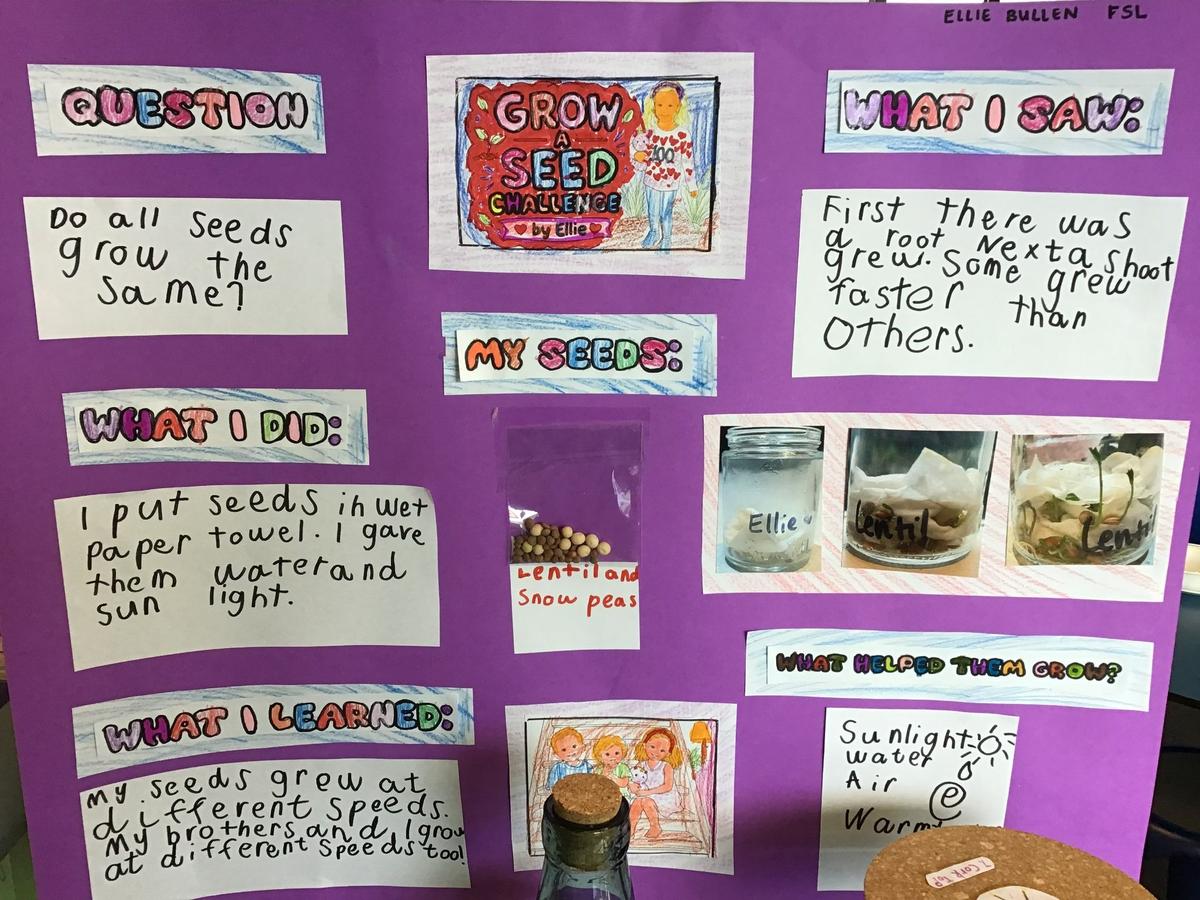 ELLIE BULLEN FSL
QUESTION
Do all seeds
grow the
same?
WHAT I DID:
I put seeds in wet
paper towel. I gave
them water and
sun light.
WHAT I LEARNED:
My seeds grew at
different speeds.
My brothers and I grow
at different speeds too!
GROW
A
SEED
CHALLENGE
by Ellie
100
MY SEEDS:
Lentil and
Snow peas
WHAT I SAW:
First there was
a root Next a shoot
grew. Some grew
faster than
Others.
Ellie
Lentil
Lentil
WHAT HELPED THEM GROW?
Sunlight
water
Air